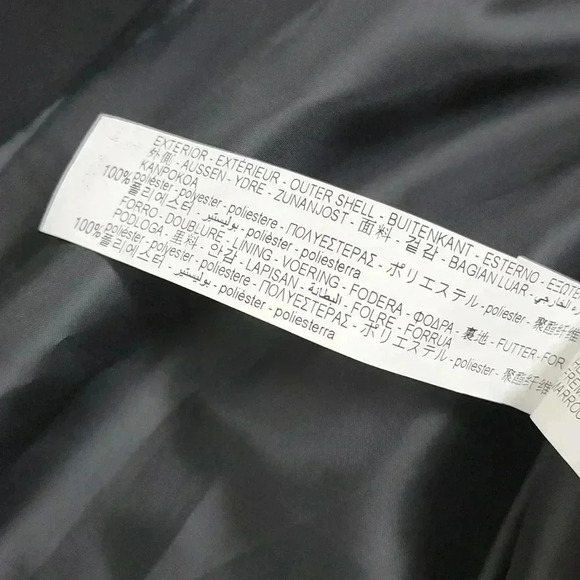 EXTERIOR - EXTÉRIEUR - OUTER SHELL - BUITENKANT - ESTERNO -
外側 - AUSSEN - YDRE - ZUNANJOST - 面料 - 겉감 - BAGIAN LUAR -
KANPOKOA
100% poliéster - polyester - poliestere - ΠΟΛΥΕΣΤΕΡΑΣ - ポリエステル - poliester - 聚酯纤维
폴리에스터 - بوليستير - polièster - poliesterra
FORRO - DOUBLURE - LINING - VOERING - FODERA - ΦΟΔΡΑ - 裏地 - FUTTER - FOR -
PODLOGA - 里料 - 안감 - LAPISAN - البطانة - FOLRE - FORRUA
100% poliéster - polyester - poliestere - ΠΟΛΥΕΣΤΕΡΑΣ - ポリエステル - poliester - 聚酯纤维
폴리에스터 - بوليستير - polièster - poliesterra